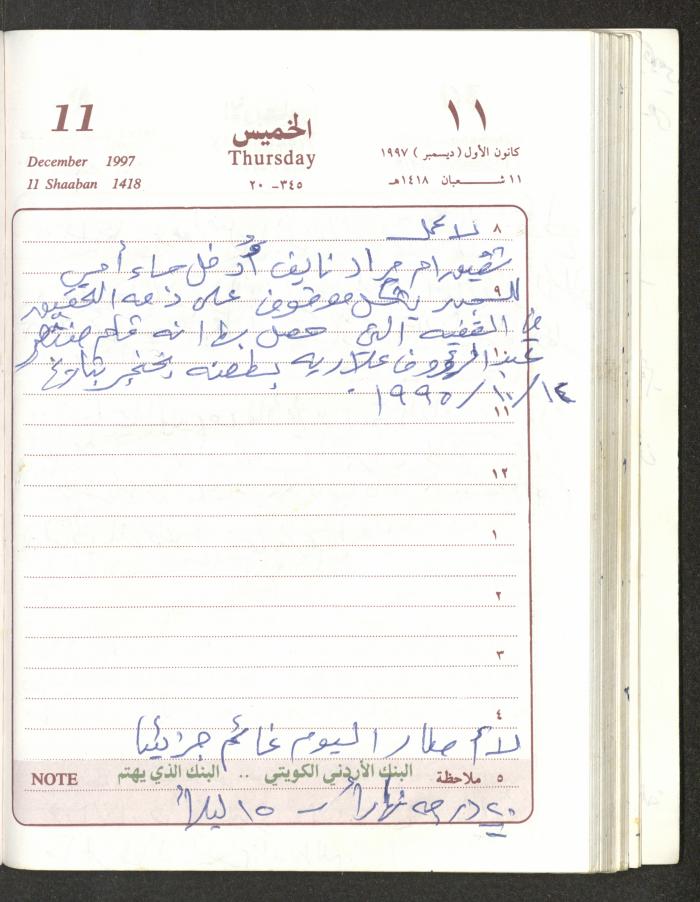 11
December 1997
11 Shaaban 1418
الخميس
Thursday
٣٤٥ - ٢٠
١١
كانون الأول (ديسمبر) ١٩٩٧
١١ شعبان ١٤١٨هـ
٨
لا عمل
شقيق ام مراد نايف أُدخل مساء أمس
٩
للسجن بشكل موقوف على ذمه التحقيق
في القضيه التي حصل بها انه قام
١٠
عبد الرؤوف علاريه بطعنه بخنجر بتاريخ
١٤/١٠/١٩٩٥.
١١
١٢
١
٢
٣
٤
لا أمطار اليوم غائم جزئيا
NOTE
البنك الأردني الكويتي .. البنك الذي يهتم
ملاحظة ٥
٢٠ درجه نهاراً - ١٥ ليلاً